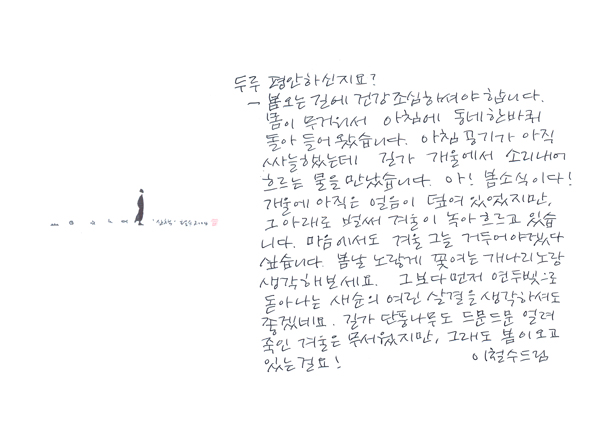 두루 평안하신지요?
- 봄오는 길에 건강조심하셔야 합니다.
몸이 무거워서 아침에 동네한바퀴
돌아 들어 왔습니다. 아침 공기가 아직
싸늘했는데 길가 개울에서 소리내어
흐르는 물을 만났습니다. 아! 봄소식이다!
개울에 아직은 얼음이 덮여 있었지만,
그 아래로 벌써 겨울이 녹아 흐르고 있습
니다. 마음에서도 겨울 그늘 거두어야겠다
싶습니다. 봄날 노랗게 꽃여는 개나리노랑
생각해보세요. 그보다 먼저 연두빛으로
돋아나는 새순의 여린 살결을 생각하셔도
좋겠네요. 길가 단풍나무도 드문드문 얼려
죽인 겨울은 무서웠지만, 그래도 봄이 오고
있는걸요!
이철수드림
2004